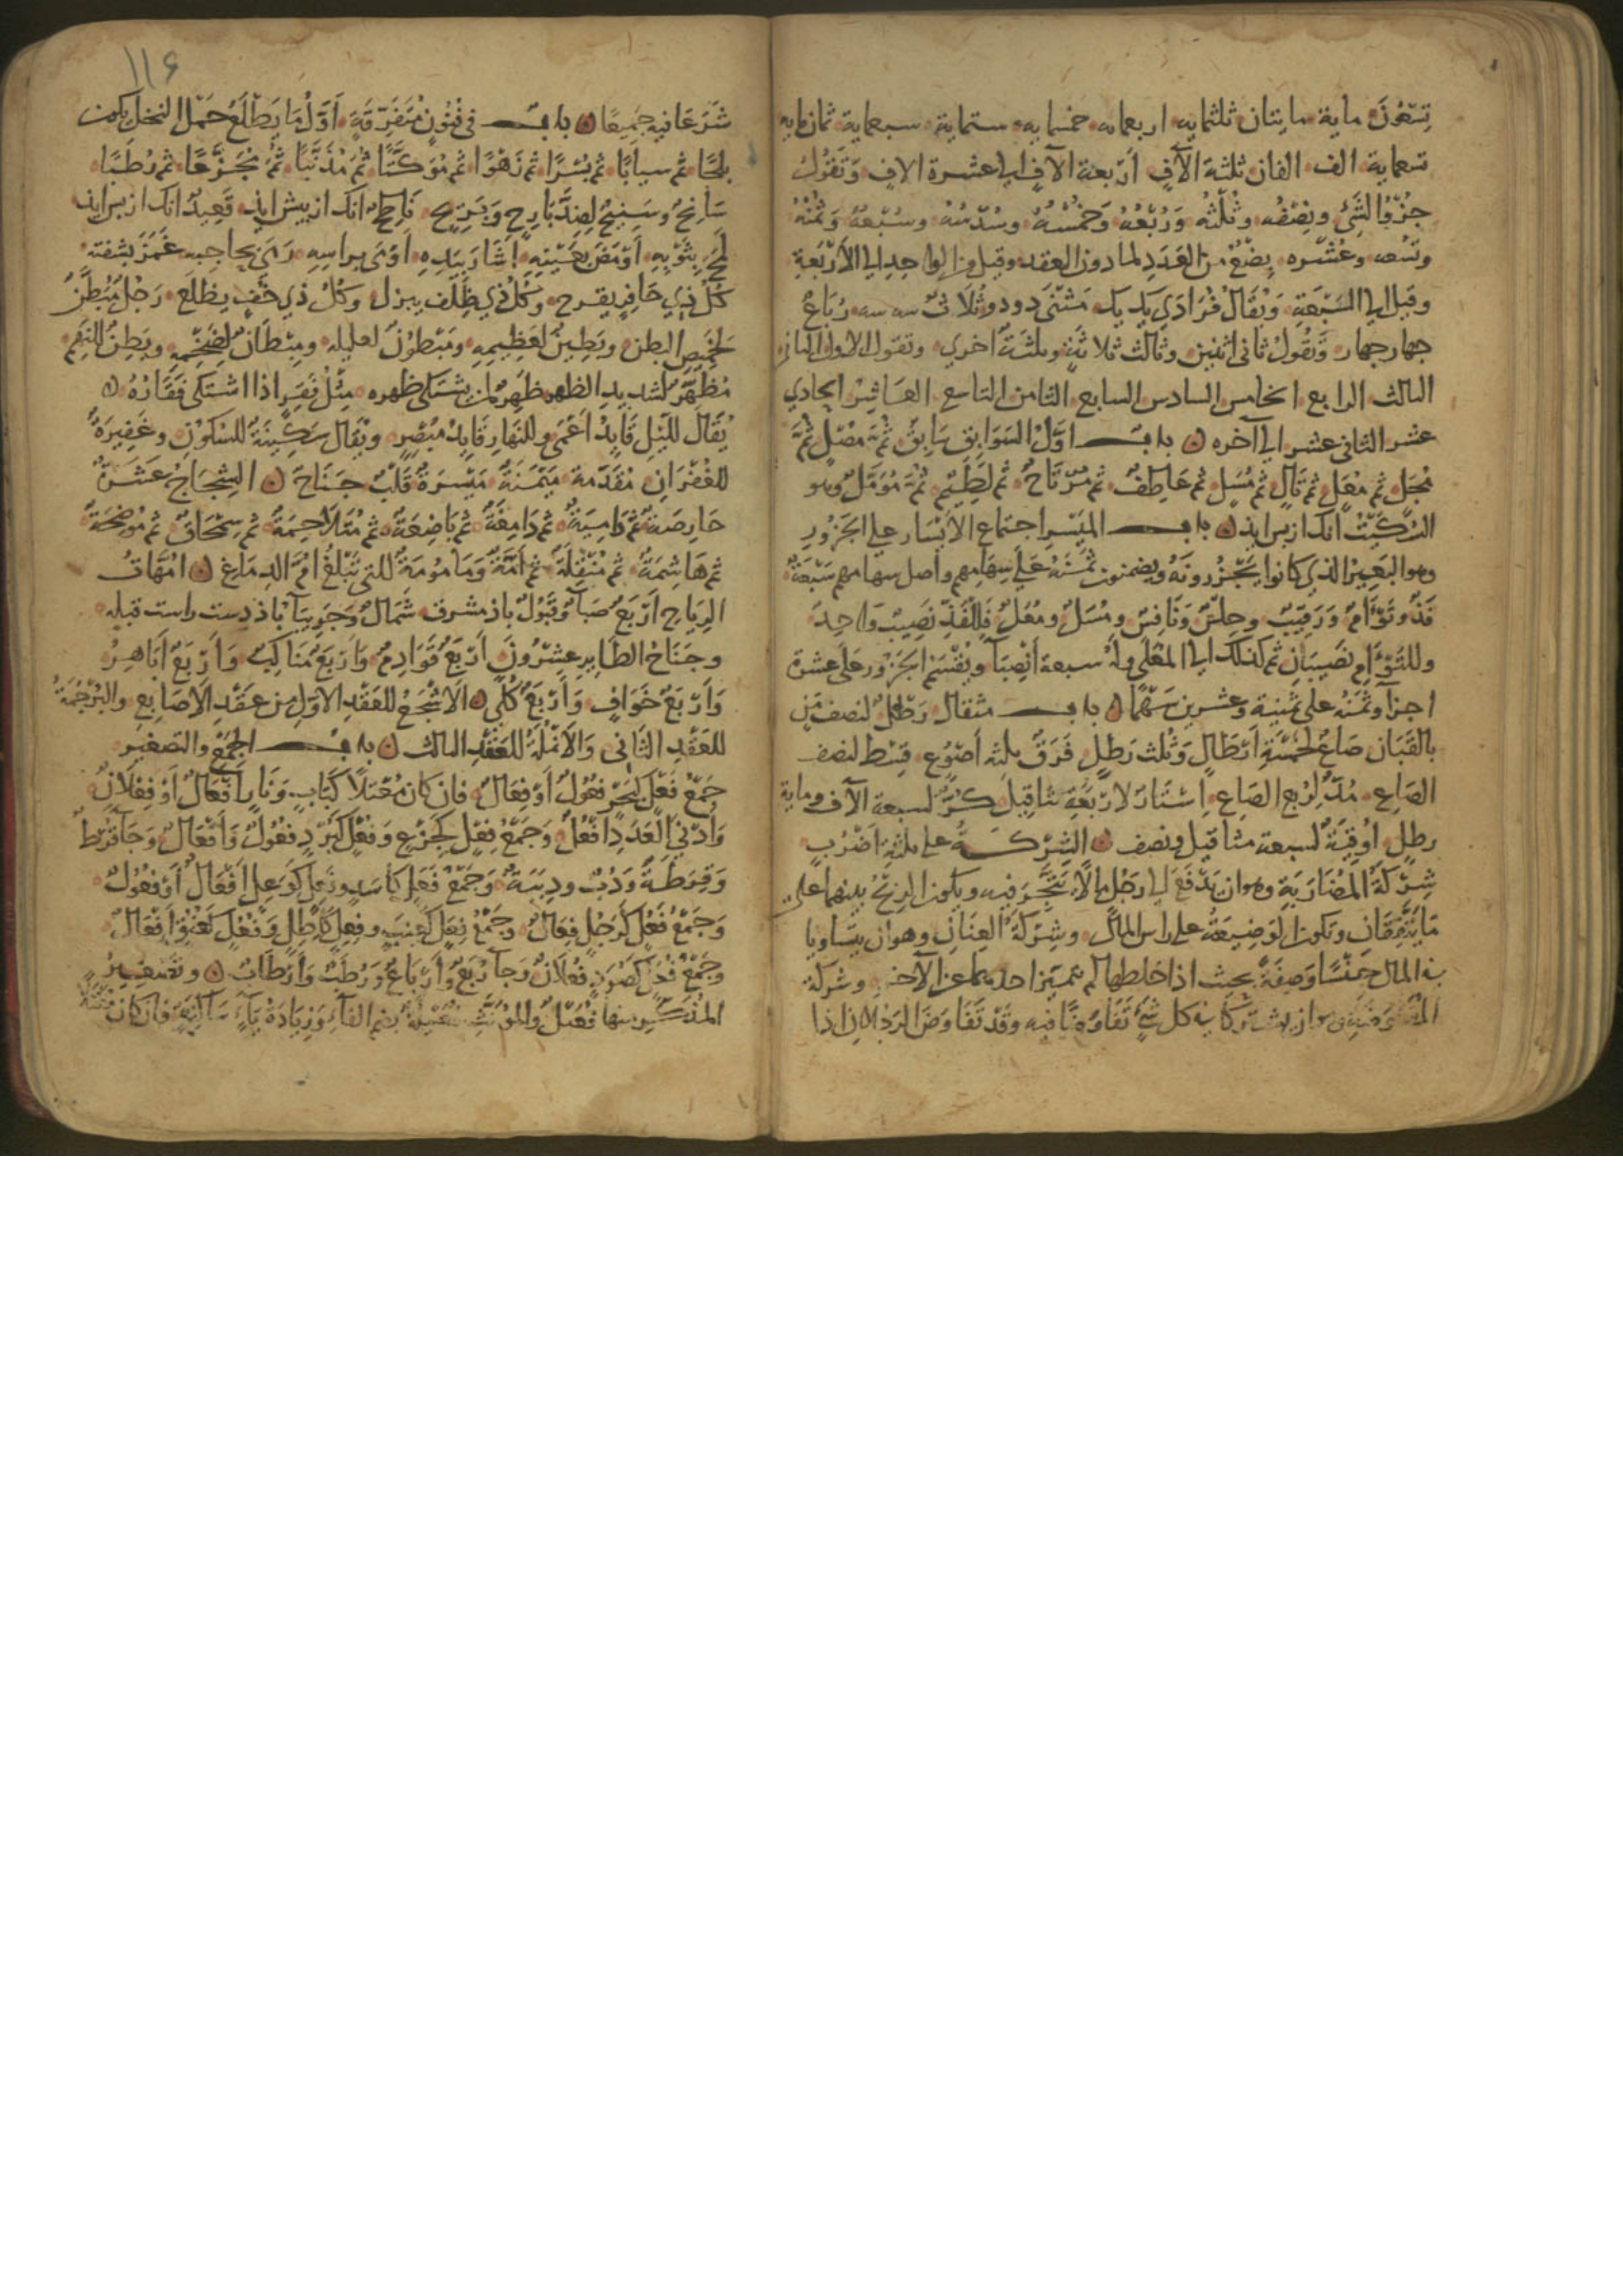 تِسْعُونَ مایة مایتان ثلثمایه اربعمایه خمسمایه ستمایة سبعمایة ثمان مایه
تسعمایة الف الفان ثلثة الآفٍ اَرْبعة الآفٍ الی عشرة الافٍ وَتَقُولُ
جُزْوُ الشَّیْ ونِصْفُه وثُلْثُه وَرُبْعُهُ وَخُمْسُهُ وسُدْسُهُ وسُبْعُهُ وَثُمْنُهُ
وتُسْعه وعُشْره بِضْعٌ من العَدَدِ لما دون العقد وقیل من الواحدِ الی الاَرْبَعَةِ
وقیل الی السَّبْعَةِ وَیُقَالُ فُرَادَی یک یک مَثْنَی دو دو ثُلَاثَ سه سه رُبَاعُ
جهار جهار وَتَقُولُ ثانی اثنین وثالث ثلاثةٍ وثلثةٌ اُخری وتقول الاول الثانی
الثالث الرابع الخامس السادس السابع الثامن التاسع العَاشِرُ الحادی
عشر الثانی عشر الی آخره باب اوّلُ السَوَابِق سَابِقٌ ثُمّ مُصَلٍّ ثُمَّ
مُجَلٍّ ثم مُعَلٍّ ثم تَالٍ ثم مُسَلٍّ ثم عَاطِفٌ ثم مُرْتَاحٌ ثم لَطِیْمٌ ثُمّ مُؤَمَّلٌ وهو
السُّكَّیْتُ انک از بس ایذ باب المَیْسِر اجتماع الاَیْسَار علی الجَزُورِ
وهو البَعِیرُ الذی کانوا یَجْزُرُونَهُ ویضمنون ثَمَنَهُ عَلَی سِهَامِهِم واصل سهامهم سَبْعَةٌ
فَذٌّ وتَوْاَمٌ وَرَقِیْبٌ وحِلْسٌ وَنَافِسٌ ومُسْبَلٌ ومُعَلًّی فَلِلْفَذِّ نَصِیبٌ وَاحِدٌ
وللتَوْاَمِ نَصِیبَانِ ثم کذلک الی المُعَلَّی وله سبعة اَنْصِبَآ ویُقْسَمُ الجَزُور عَلَی عشرة
اجزآ وثَمَنُهُ علی ثمنیة وعشرین سَهْمًا باب مثقال رَطْلٌ لنصف مَنٍّ
بالقَبَان صَاعٌ لخَمْسَةِ اَرْطَالٍ وَثُلث رَطْلٍ فَرَقٌ ثلثه اَصْوُعٍ قِسْط لنصف
الصَاعِ مُدٌّ لِرُبع الصَاعِ اِسْتَارٌ لِاَرْبَعَةِ مثاقِیلَ کُرٌّ لسبعة الآف ومایة
رطلٍ اُوقِیَّةٌ لسبعة مثاقیل ونصف الشِرْکَةُ علی ثلثةِ اَضْرُبٍ
شِرْکَةُ المُضَارَبَةِ وهو ان یَدْفَعَ الی رَجُلٍ مالًا یَتَّجِرُ فیه ویکون الرِبْحُ بینهما علی
مَا یَتَّفِقَانِ وتکون الوَضِیعَةُ علی راس المال وشِرْکَةُ العِنَانِ وهو ان یتساویا
فی المال جِنْسًا وصِفَةً بحیث اذا خلطها لم یتمیز احدهما عن الآخرِ وشرکة
المُفَاوَضَةِ وهو ان یشترکا فی کل شیْ تَفَاوَضَا فیه وقد تَفَاوَضَ الرَجُلانِ اذا
۱۱۶
شَرَعَا فیه جَمِیعًا باب فی فُنُونٍ مُتَفَرِّقَةٍ اَوَّلُ مَا یَطْلَعُ حَمْلُ النخل یکون
بلَحًا ثم سیابًا ثم بُسْرًا ثم زَهْوًا ثم مُوَکَّتًا ثم مُذَنِّبًا ثم مُجَزَّعًا ثم رُطَبًا
سَانِحٌ وسَنِیْحٌ لِضِدِّ بَارِحٍ وَبَرِیْحٍ نَاطِحٌ انک از بیش ایذ قَعِیدٌ انک از بس ایذ
لَمَحَ بِثَوْبِهِ اَوْمَضَ بعَیْنَیْهِ اِشَارَ بِیَدِهِ اَوْمَی براسِهِ رَمَزَ بحاجبه غَمَزَ بشفته
کُلُّ ذِی حَافِرٍ یقرح وکُلُّ ذی ظِلْف یبزل وکُلُّ ذی خُفٍّ یظلَع رَجُلٌ مُبَطَّنٌ
لخَمِیصِ البطن وبَطِینٌ لعَظِیمِهِ ومَبْطُونٌ لعلیله ومِبْطَانٌ لضَخْمِهِ وبَطِنٌ للنَهِم
مُظَهَّرٌ لشدیدِ الظهر ظَهِرٌ لمن یشتکی ظهره مِثْلُ فَقِرٍ اذا اشْتَکی فَقَارَهُ
یُقَال لِلَّیْلِ قَایِدٌ اَعْمَی وللنَهارِ قَایِدٌ مُبْصِرٍ ویُقَال سَکِینَةٌ للسَکُونِ وغَفِیرَةٌ
للغُفْرَانِ مُقَدِّمة مَیْمَنَةٌ مَیْسَرَةٌ قَلْبٌ جَنَاحٌ الشِجَاجُ عَشَرٌ
حَارِصَةٌ ثم دَامِیَةٌ ثم دَامِغَةٌ ثم بَاضِعَةٌ ثم مُتَلَاحِمَةٌ ثم سِمْحَاقٌ ثم مُوْضِحَةٌ
ثم هَاشِمَةٌ ثم مُنَقِّلَةٌ ثم آمَّةٌ وَمَامُومَةٌ للتی تَبْلُغُ اُمَّ الدِمَاغِ اُمَّهَاتُ
الرِیَاحِ اَرْبَعٌ صَبَآ وَقَبُولٌ باذ مشرق شَمَالٌ وجَرِبِیَآ باذ دست راست قبله
وجَنَاحُ الطَایِرِ عِشْرُونَ اَرْبَعٌ قَوَادِمُ وَاَرْبَعٌ مَنَاکِبُ وَاَرْبَعٌ اَبَاهِرُ
وَاَرْبَعٌ خَوَافٍ وَاَرْبَعٌ کُلًی الاَشْجَعُ للعَقْدِ الاوّلِ من عقْدِ الاَصَابِع والبُرْجُمَةُ
للعَقْدِ الثَانی وَالاَنْمُلَةُ للعَقْدِ الثالث باب الجَمْعِ والتصغیر
جَمْعُ فَعْلٍ کبَحْرٍ فُعُولٌ اَوْ فِعَالٌ فان کان مُعْتَلًّا کَبَابٍ وَنَارٍ اَفْعَالٌ اَوْ فِعْلَانٌ
وَاَدْنَی العَدَدِ اَفْعُلٌ وَجَمْعُ فِعْلٍ کَجِذْعٍ وَفُعْلٍ کَبُرْدٍ فُعُولٌ وَاَفْعَالٌ وَجَآ قُرْطٌ
وَقِرَطَةٌ وَدُبٌّ ودِبَبَةٌ وَجَمْعُ فَعَلٍ کاَسَدٍ وفَعِلٍ کَوَعِلٍ اَفْعَالٌ اَوْ فُعُولٌ
وَجَمْعُ فَعُلٍ کَرَجُلٍ فِعَالٌ وجَمْعُ فِعَلٍ کَعِنَبٍ وفِعِلٍ کَاِطِلٍ وَفُعُلٍ کَعُنُقٍ اَفْعَالٌ
وجَمْعُ فُعَلٍ کَصُرَدٍ فِعْلَانٌ وَجَآ رُبَعٌ وَاَرْبَاعٌ وَرُطَبٌ وَاَرْطَابٌ وتصغیرُ
المُذَکَّرِ منها فُعَیْلٌ والمؤنثِ فُعَیْلَةٌ بضم الفآءِ وَزِیَادَةِ یَآءٍ سَاکِنَةٍ فان کان